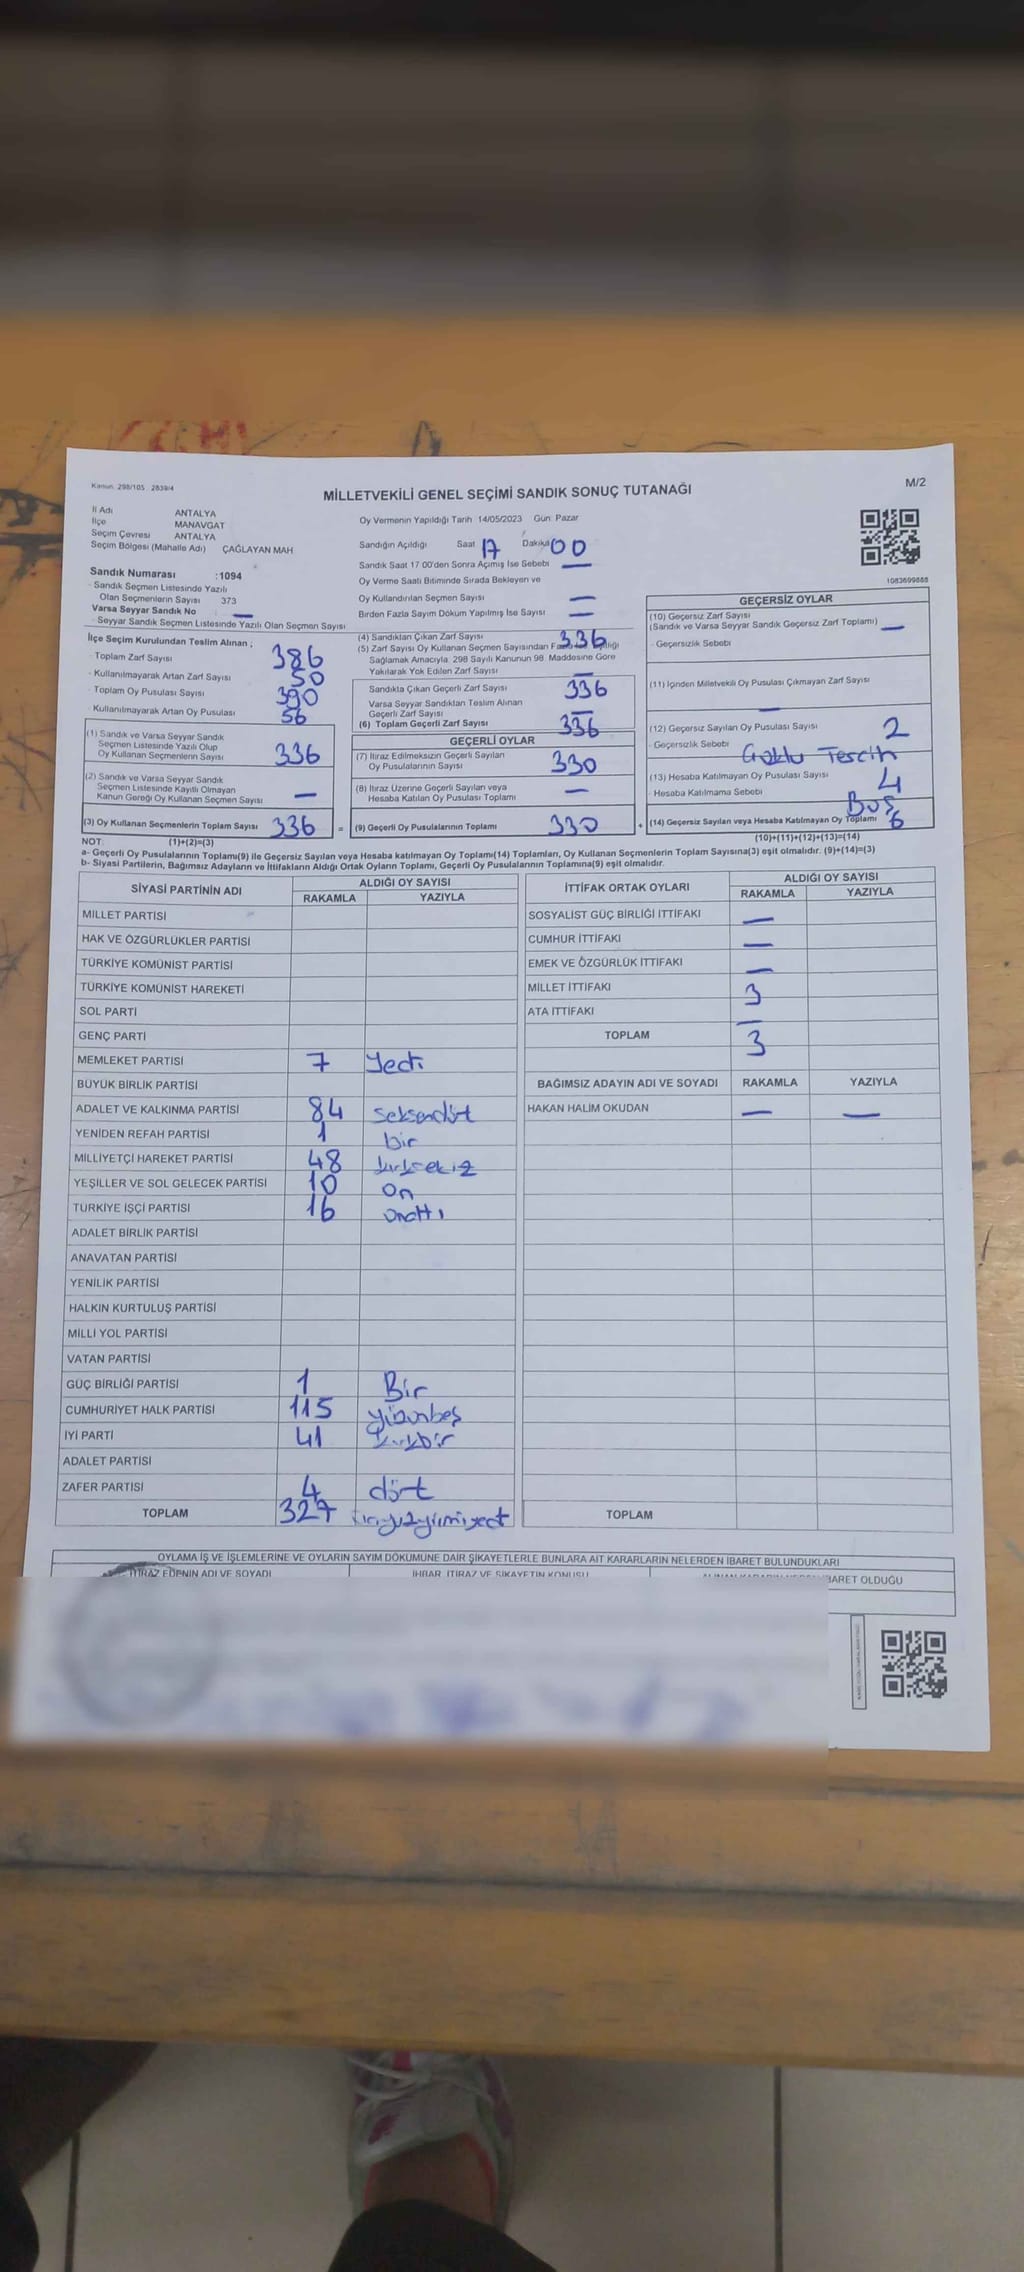 Kanun 298/105 2839/4
MİLLETVEKİLİ GENEL SEÇİMİ SANDIK SONUÇ TUTANAĞI
M/2
İl Adı ANTALYA
İlçe MANAVGAT
Seçim Çevresi ANTALYA
Seçim Bölgesi (Mahalle Adı) ÇAĞLAYAN MAH
Sandık Numarası :1094
- Sandık Seçmen Listesinde Yazılı
Olan Seçmenlerin Sayısı 373
Varsa Seyyar Sandık No —
- Seyyar Sandık Seçmen Listesinde Yazılı Olan Seçmen Sayısı
Oy Vermenin Yapıldığı Tarih 14/05/2023 Gün: Pazar
Sandığın Açıldığı Saat 17 Dakika 00
Sandık Saat 17 00'den Sonra Açımış İse Sebebi —
Oy Verme Saati Bitiminde Sırada Bekleyen ve
Oy Kullandırılan Seçmen Sayısı —
Birden Fazla Sayım Döküm Yapılmış İse Sayısı —
1083699868
İlçe Seçim Kurulundan Teslim Alınan ;
- Toplam Zarf Sayısı 386
- Kullanılmayarak Artan Zarf Sayısı 50
- Toplam Oy Pusulası Sayısı 390
- Kullanılmayarak Artan Oy Pusulası 56
(1) Sandık ve Varsa Seyyar Sandık
Seçmen Listesinde Yazılı Olup
Oy Kullanan Seçmenlerin Sayısı 336
(2) Sandık ve Varsa Seyyar Sandık
Seçmen Listesinde Kayıtlı Olmayan
Kanun Gereği Oy Kullanan Seçmen Sayısı —
(3) Oy Kullanan Seçmenlerin Toplam Sayısı 336 =
(4) Sandıktan Çıkan Zarf Sayısı 336
(5) Zarf Sayısı Oy Kullanan Seçmen Sayısından
Sağlamak Amacıyla, 298 Sayılı Kanunun 98. Maddesine Göre
Yakılarak Yok Edilen Zarf Sayısı —
Sandıkta Çıkan Geçerli Zarf Sayısı 336
Varsa Seyyar Sandıktan Teslim Alınan
Geçerli Zarf Sayısı —
(6) Toplam Geçerli Zarf Sayısı 336
GEÇERLİ OYLAR
(7) İtiraz Edilmeksizin Geçerli Sayılan
Oy Pusulalarının Sayısı 330
(8) İtiraz Üzerine Geçerli Sayılan veya
Hesaba Katılan Oy Pusulası Toplamı —
(9) Geçerli Oy Pusulalarının Toplamı 330 +
GEÇERSİZ OYLAR
(10) Geçersiz Zarf Sayısı
(Sandık ve Varsa Seyyar Sandık Geçersiz Zarf Toplamı) —
- Geçersizlik Sebebi
(11) İçinden Milletvekili Oy Pusulası Çıkmayan Zarf Sayısı
—
(12) Geçersiz Sayılan Oy Pusulası Sayısı 2
- Geçersizlik Sebebi Çoklu Tercih
(13) Hesaba Katılmayan Oy Pusulası Sayısı 4
- Hesaba Katılmama Sebebi Boş
(14) Geçersiz Sayılan veya Hesaba Katılmayan Oy Toplamı 6
NOT: (1)+(2)=(3) (10)+(11)+(12)+(13)=(14)
a- Geçerli Oy Pusulalarının Toplamı(9) ile Geçersiz Sayılan veya Hesaba katılmayan Oy Toplamı(14) Toplamları, Oy Kullanan Seçmenlerin Toplam Sayısına(3) eşit olmalıdır. (9)+(14)=(3)
b- Siyasi Partilerin, Bağımsız Adayların ve İttifakların Aldığı Ortak Oyların Toplamı, Geçerli Oy Pusulalarının Toplamına(9) eşit olmalıdır.
SİYASİ PARTİNİN ADI ALDIĞI OY SAYISI
RAKAMLA YAZIYLA
MİLLET PARTİSİ
HAK VE ÖZGÜRLÜKLER PARTİSİ
TÜRKİYE KOMÜNİST PARTİSİ
TÜRKİYE KOMÜNİST HAREKETİ
SOL PARTİ
GENÇ PARTİ
MEMLEKET PARTİSİ 7 Yedi
BÜYÜK BİRLİK PARTİSİ
ADALET VE KALKINMA PARTİSİ 84 seksendört
YENİDEN REFAH PARTİSİ 1 bir
MİLLİYETÇİ HAREKET PARTİSİ 48 kırksekiz
YEŞİLLER VE SOL GELECEK PARTİSİ 10 on
TÜRKİYE İŞÇİ PARTİSİ 16 onaltı
ADALET BİRLİK PARTİSİ
ANAVATAN PARTİSİ
YENİLİK PARTİSİ
HALKIN KURTULUŞ PARTİSİ
MİLLİ YOL PARTİSİ
VATAN PARTİSİ
GÜÇ BİRLİĞİ PARTİSİ 1 Bir
CUMHURİYET HALK PARTİSİ 115 yüzonbeş
İYİ PARTİ 41 kırkbir
ADALET PARTİSİ
ZAFER PARTİSİ 4 dört
TOPLAM 327 üçyüzyirmiyedi
İTTİFAK ORTAK OYLARI ALDIĞI OY SAYISI
RAKAMLA YAZIYLA
SOSYALİST GÜÇ BİRLİĞİ İTTİFAKI —
CUMHUR İTTİFAKI —
EMEK VE ÖZGÜRLÜK İTTİFAKI —
MİLLET İTTİFAKI 3
ATA İTTİFAKI —
TOPLAM 3
BAĞIMSIZ ADAYIN ADI VE SOYADI RAKAMLA YAZIYLA
HAKAN HALİM OKUDAN — —
TOPLAM
OYLAMA İŞ VE İŞLEMLERİNE VE OYLARIN SAYIM DÖKÜMÜNE DAİR ŞİKAYETLERLE BUNLARA AİT KARARLARIN NELERDEN İBARET BULUNDUKLARI
İTİRAZ EDENİN ADI VE SOYADI İHBAR, İTİRAZ VE ŞİKAYETİN KONUSU İBARET OLDUĞU